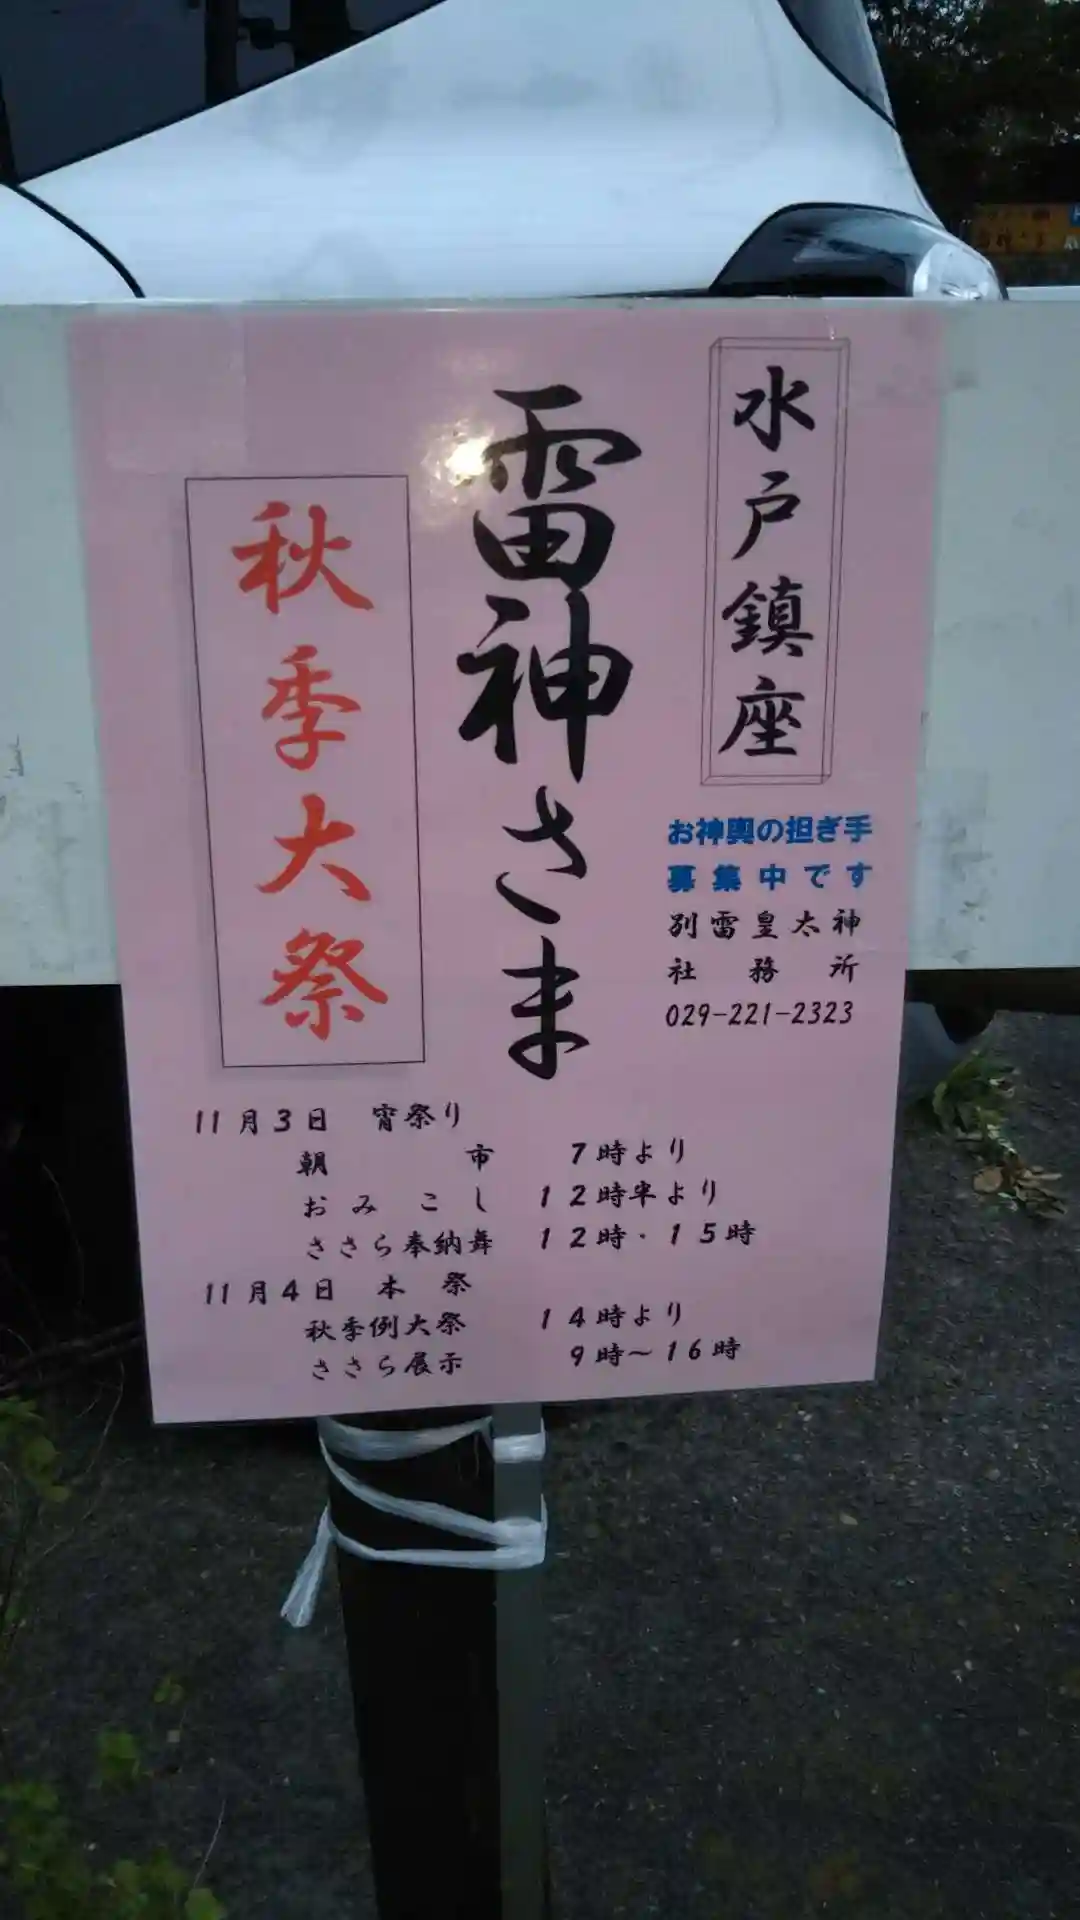 水戸鎮座
雷神さま
秋季大祭
お神輿の担ぎ手
募集中です
別雷皇太神
社務所
029-221-2323
11月3日 宵祭り
朝市 7時より
おみこし 12時半より
ささら奉納舞 12時・15時
11月4日 本祭
秋季例大祭 14時より
ささら展示 9時~16時